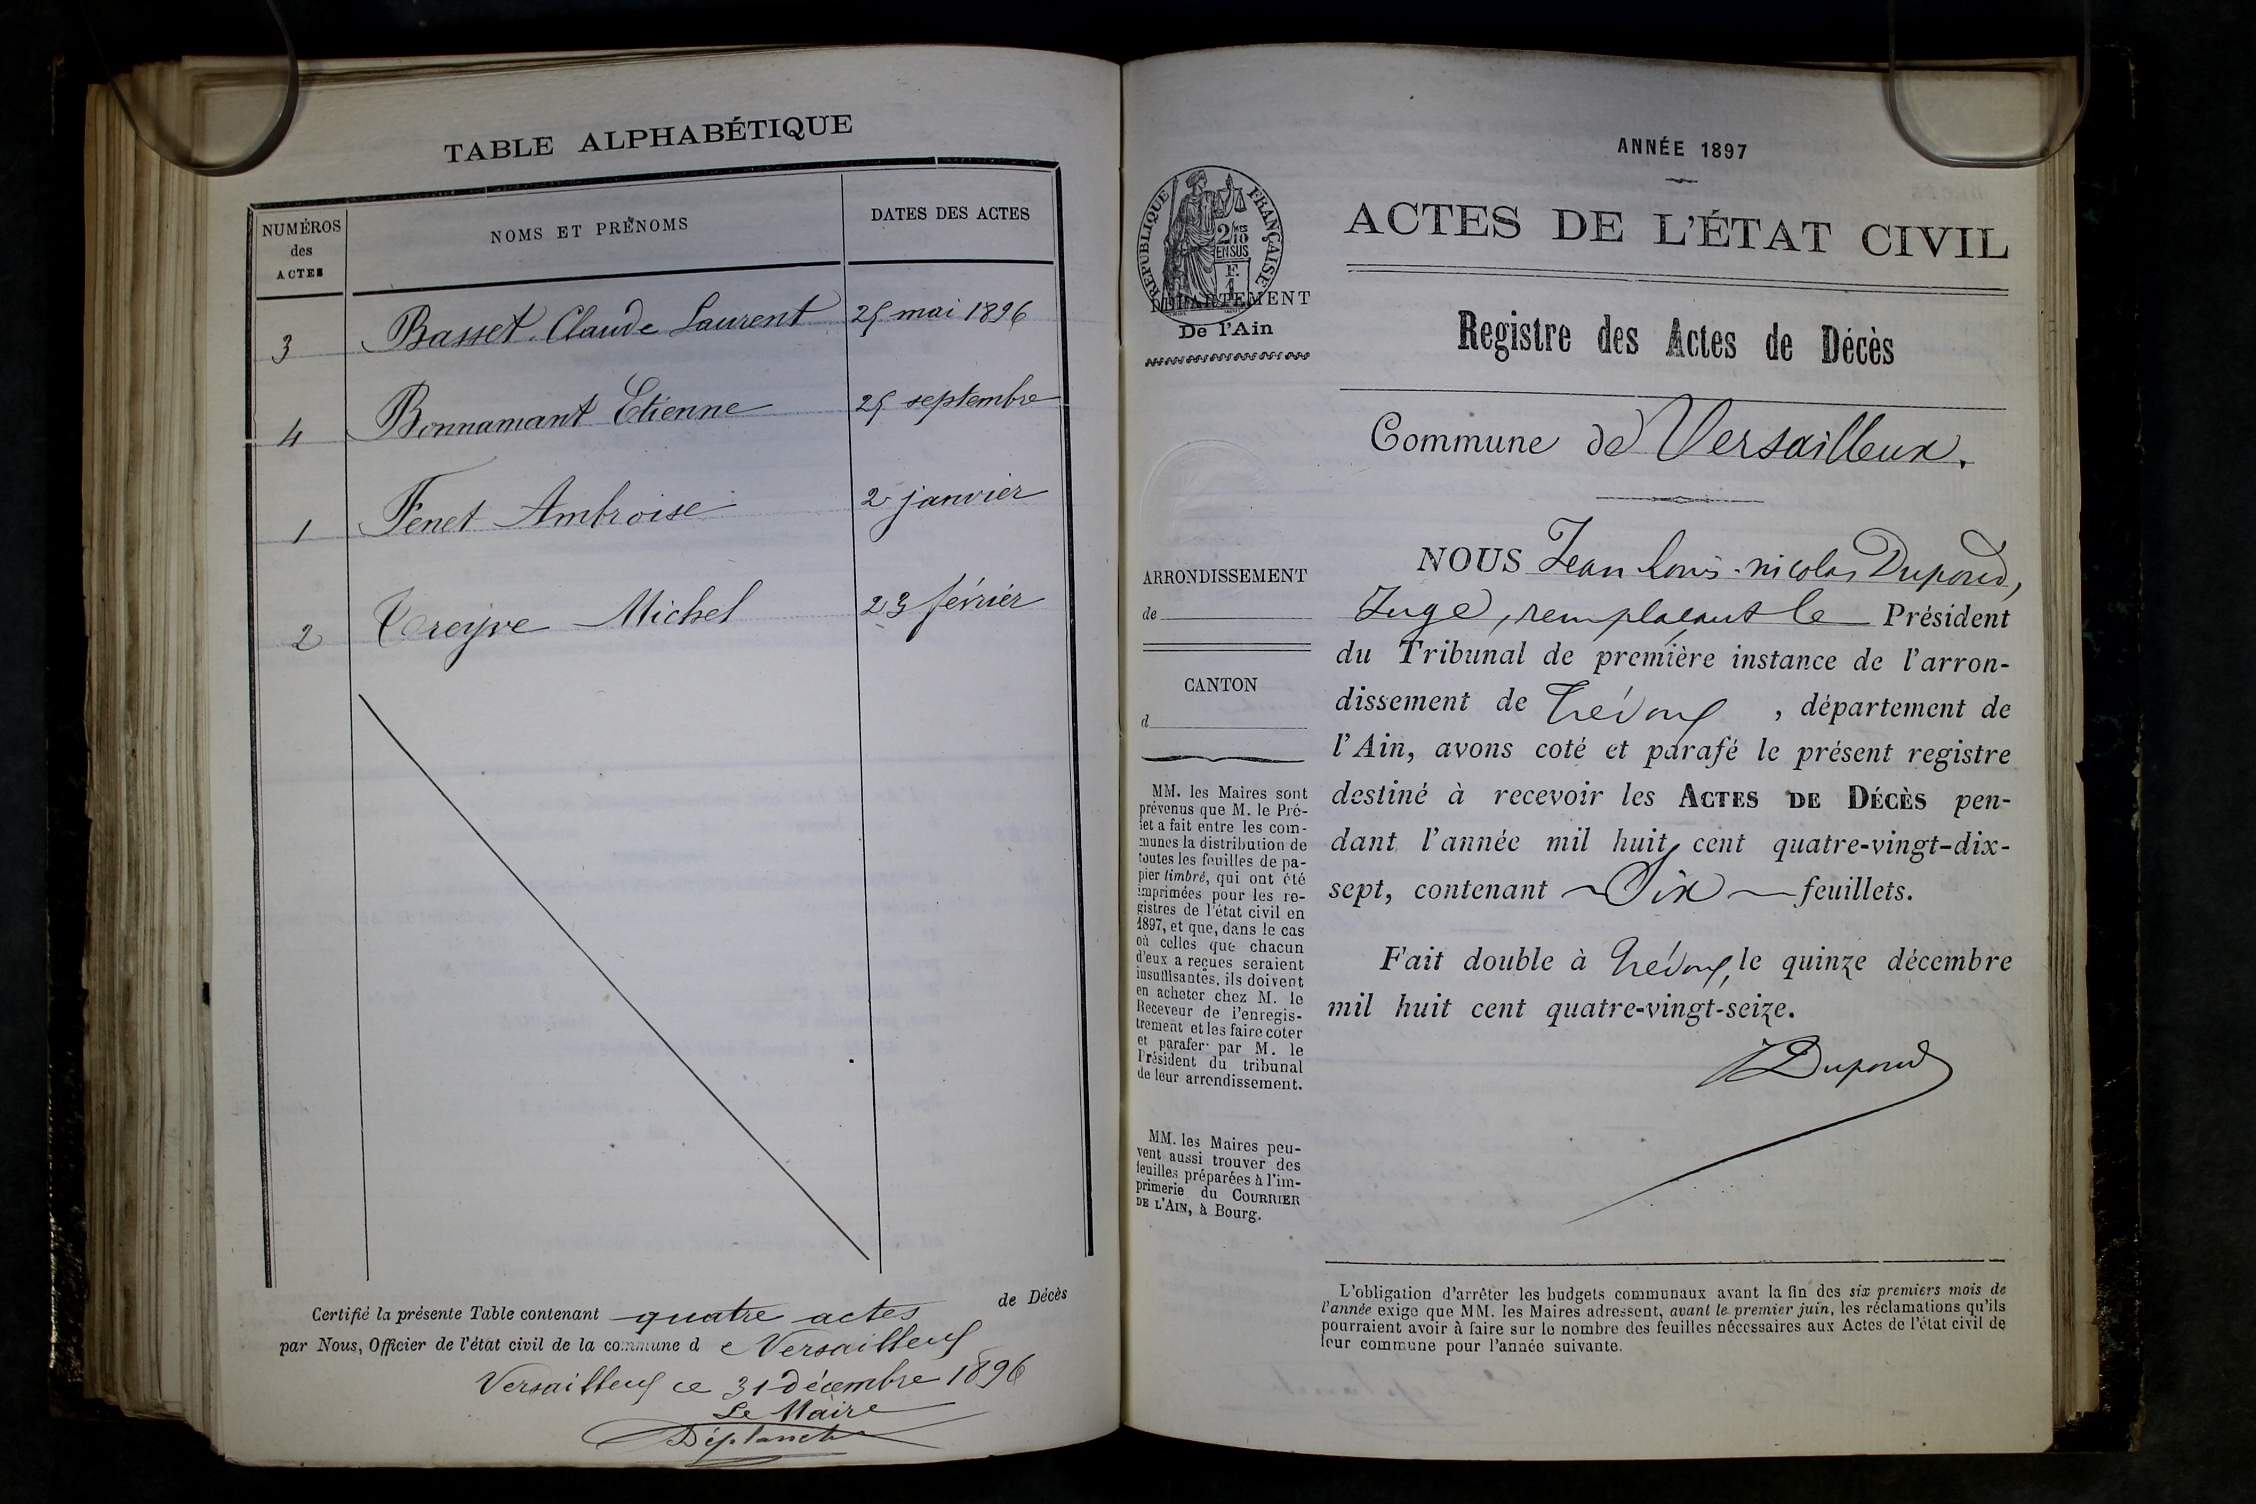 TABLE ALPHABÉTIQUE
NUMÉROS
des
ACTES
NOMS ET PRÉNOMS
DATES DES ACTES
3 Basset Claude Laurent 25 mai 1896
4 Bonnamant Etienne 25 septembre
1 Fenet Ambroise 2 janvier
2 Treyve Michel 23 février
Certifié la présente Table contenant quatre actes de Décès
par Nous, Officier de l'état civil de la commune de Versailleux
Versailleux ce 31 décembre 1896
Le Maire
Déplanche
ANNÉE 1897
RÉPUBLIQUE FRANÇAISE
ACTES DE L'ÉTAT CIVIL
DÉPARTEMENT
De l'Ain
Registre des Actes de Décès
Commune de Versailleux.
ARRONDISSEMENT
de
CANTON
d
MM. les Maires sont
prévenus que M. le Pré-
fet a fait entre les com-
munes la distribution de
toutes les feuilles de pa-
pier timbré, qui ont été
imprimées pour les re-
gistres de l'état civil en
1897, et que, dans le cas
où celles que chacun
d'eux a reçues seraient
insuffisantes, ils doivent
en acheter chez M. le
Receveur de l'enregis-
trement et les faire coter
et parafer par M. le
Président du tribunal
de leur arrondissement.
MM. les Maires peu-
vent aussi trouver des
feuilles préparées à l'im-
primerie du COURRIER
DE L'AIN, à Bourg.
NOUS Jean Louis-nicolas Dupond,
Juge, remplaçant le Président
du Tribunal de première instance de l'arron-
dissement de Trévoux, département de
l'Ain, avons coté et parafé le présent registre
destiné à recevoir les ACTES DE DÉCÈS pen-
dant l'année mil huit cent quatre-vingt-dix-
sept, contenant Six feuillets.
Fait double à Trévoux, le quinze décembre
mil huit cent quatre-vingt-seize.
Dupond
L'obligation d'arrêter les budgets communaux avant la fin des six premiers mois de
l'année exige que MM. les Maires adressent, avant le premier juin, les réclamations qu'ils
pourraient avoir à faire sur le nombre des feuilles nécessaires aux Actes de l'état civil de
leur commune pour l'année suivante.